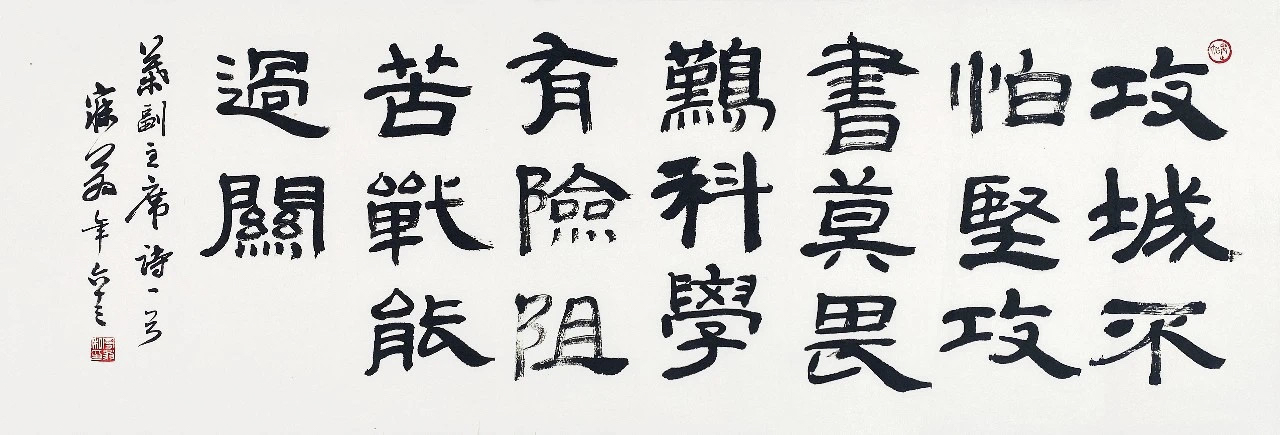 攻城不
怕堅攻
書莫畏
鷬科學
有險阻
苦戰能
過關
葉副主席詩一首
年六十三